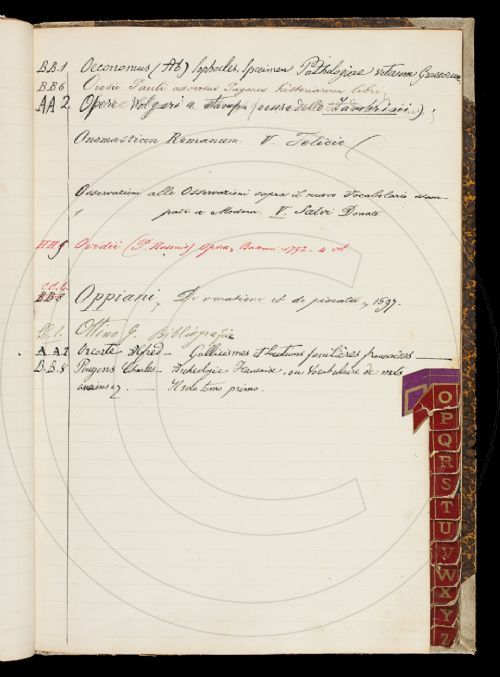 B.B.1 Oeconomus (Ab) Sophocles, Specimen Pathologiae veterum Graecorum
B.B.6 Orosii Pauli adversus Paganos historiarum libri,
AA 2 Opere Volgari a stampa (cura dello Zambrini) ;
Onomasticon Romanum V. Felicie (
Osservazioni alle Osservazioni sopra il nuovo Vocabolario stam-
pato a Modena. V. Salvi Donato
HH Ovidii (P. Nasonis) Opera, Bassani 1792. 4 vol
B.B.8 Oppiani, De venatione et de piscatu, 1597.
1. Ottino G. Bibliografia
A.A.2 Alfred — Gallicismes et locutions familières françaises —
B.B.8 Pougens Charles — Archéologie Française, ou Vocabulaire de mots
anciens — Il solo tomo primo.
O
P
Q
R
S
T
U
V
W
X
Y
Z